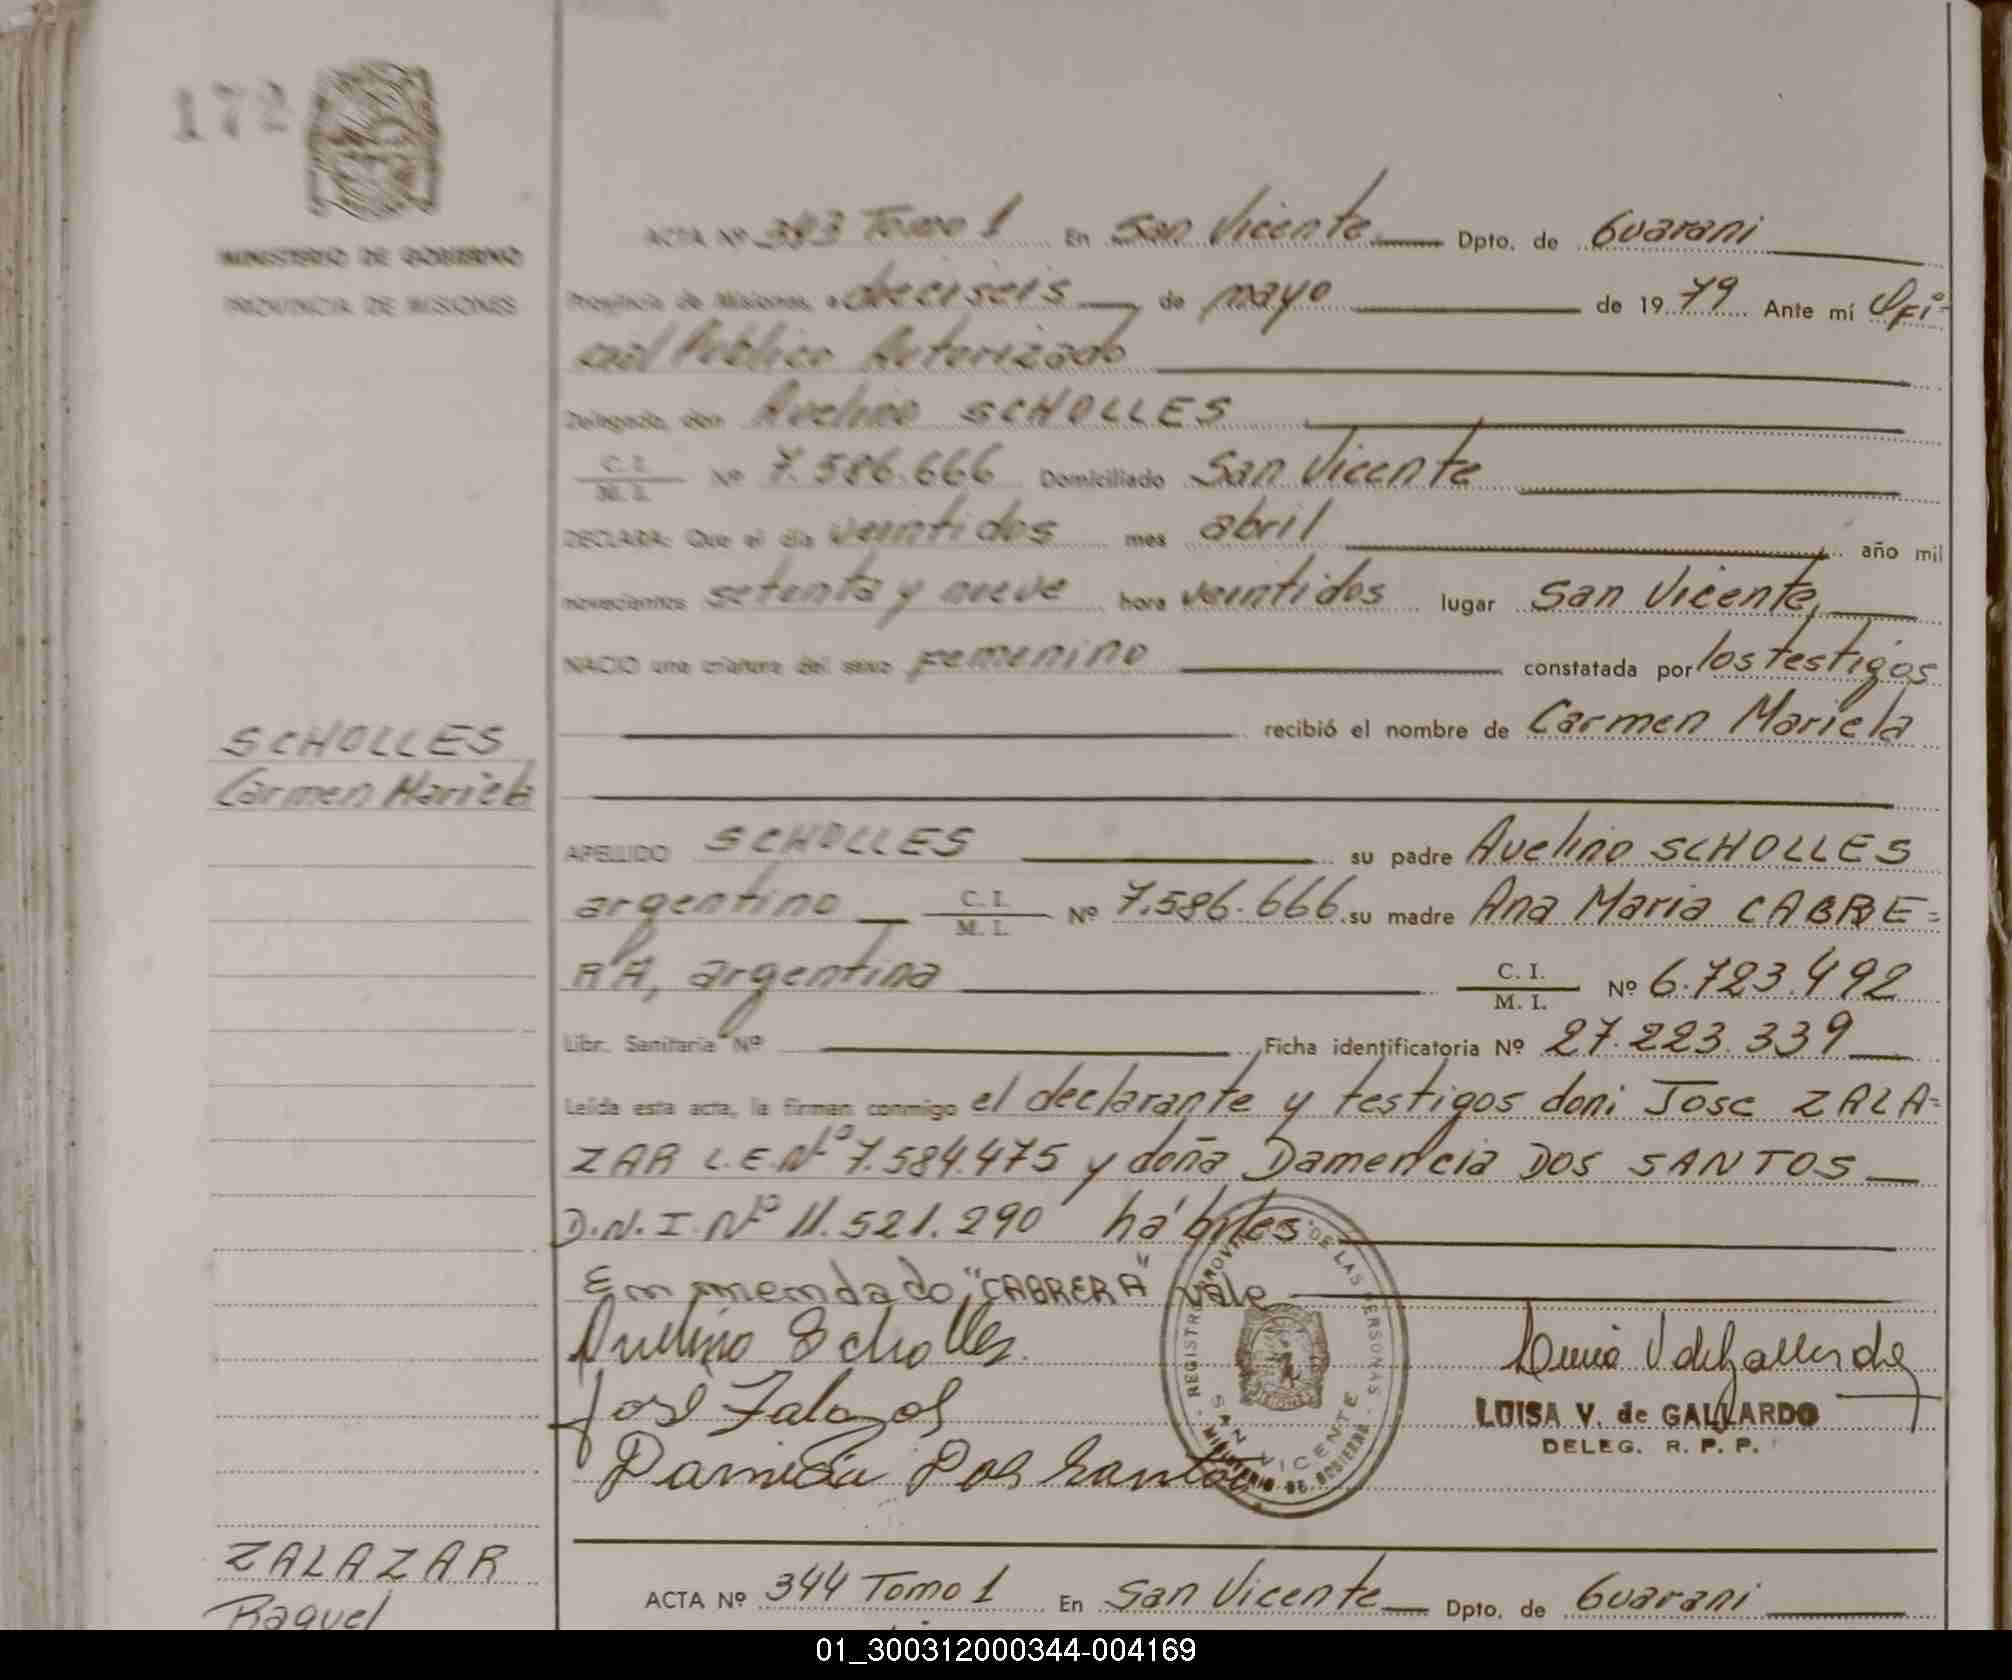 172
MINISTERIO DE GOBIERNO
PROVINCIA DE MISIONES
ACTA Nº 343 Tomo 1 En San Vicente Dpto. de Guarani
Provincia de Misiones, a dieciseis de mayo de 1979 Ante mí Ofi-
cial Publico Autorizado
Delegado, don Avelino SCHOLLES
C. I. / M. I. Nº 7.586.666 Domiciliado San Vicente
DECLARA: Que el día veintidos mes abril año mil
novecientos setenta y nueve hora veintidos lugar San Vicente,
NACIO una criatura del sexo Femenino constatada por los testigos
recibió el nombre de Carmen Mariela
SCHOLLES
Carmen Mariela
APELLIDO SCHOLLES su padre Avelino SCHOLLES
argentino C. I. / M. I. Nº 7.586.666 su madre Ana Maria CABRE=
RA, argentina C. I. / M. I. Nº 6.723.492
Libr. Sanitaria Nº Ficha identificatoria Nº 27.223.339
Leída esta acta, la firman conmigo el declarante y testigos don: Jose ZALA=
ZAR L.E.Nº 7.584.475 y doña Damencia DOS SANTOS
D.N.I. Nº 11.521.290 hábiles
Enmendado "CABRERA" vale
Avelino Scholles
José Zalazar
Dos Santos
REGISTRO PROVINCIAL DE LAS PERSONAS
SAN VICENTE
MINISTERIO DE GOBIERNO
LUISA V. de GALLARDO
DELEG. R. P. P.
ZALAZAR
Raquel
ACTA Nº 344 Tomo 1 En San Vicente Dpto. de Guarani
01_300312000344-004169